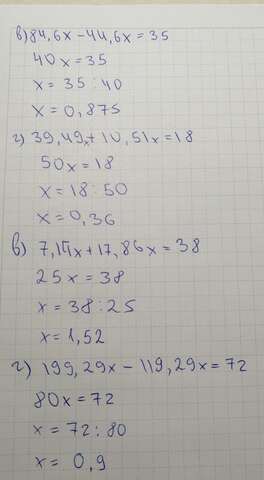 в) 84,6x - 44,6x = 35
40x = 35
x = 35 : 40
x = 0,875
г) 39,49x + 10,51x = 18
50x = 18
x = 18 : 50
x = 0,36
в) 7,14x + 17,86x = 38
25x = 38
x = 38 : 25
x = 1,52
г) 199,29x - 119,29x = 72
80x = 72
x = 72 : 80
x = 0,9